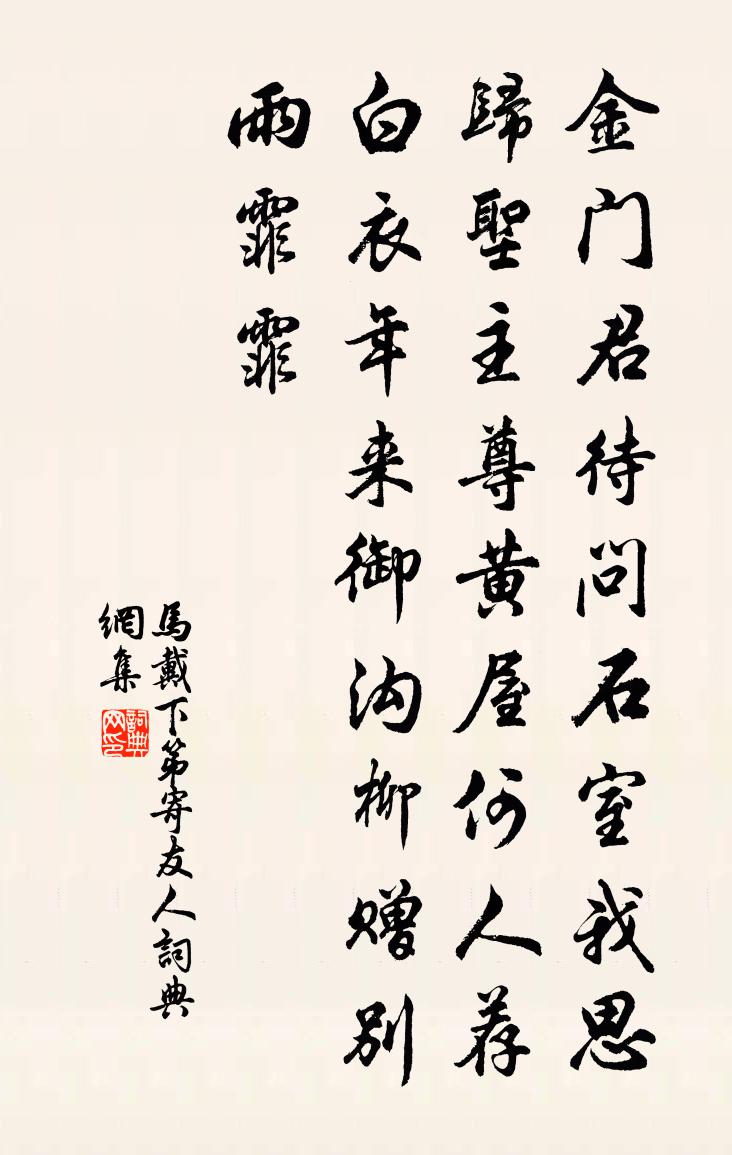 金门君待问石室我思
歸聖主尊黄屋何人荐
白衣年来御沟柳赠别
雨霏霏
馬戴下第寄友人詞典
網集
詞典
网印